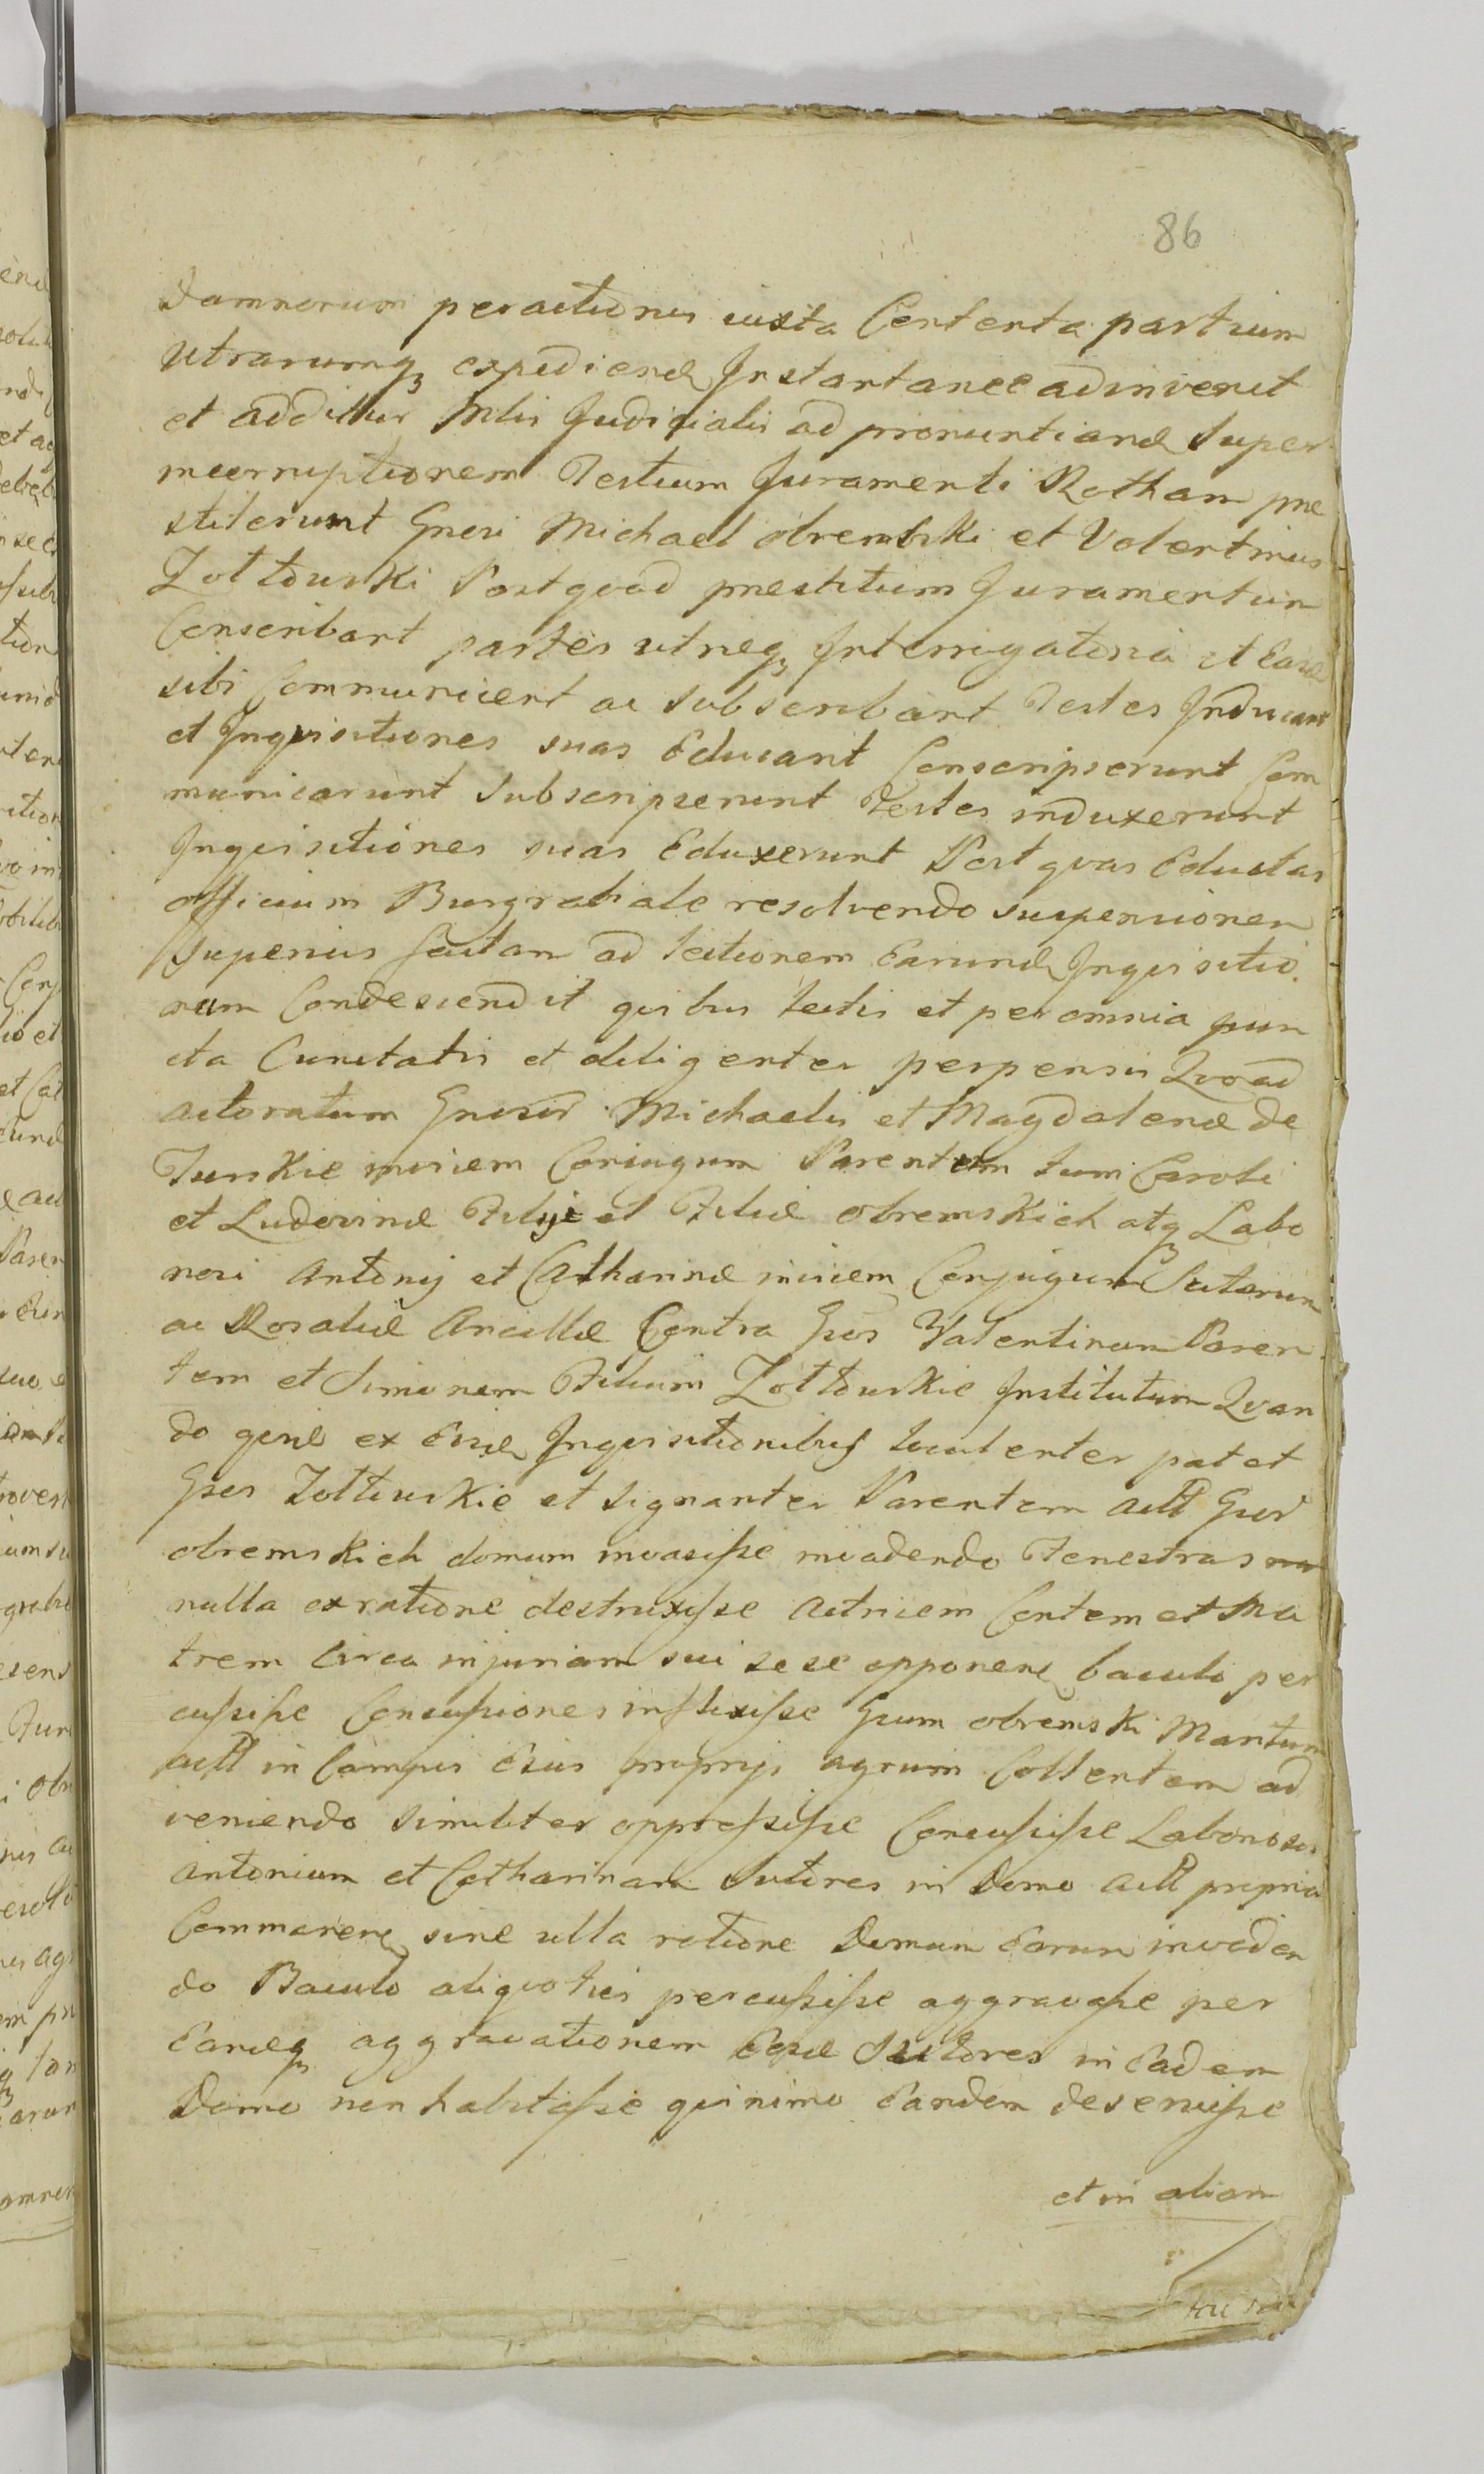 86
Damnorum peractionis iuxta Contenta partium
Utrarumq3 expediend Instantanee adinvenit
et additur Mlis Judicialis ad pronuntiand super
incorruptionem Testium Juramenti Rotham prae
stiterunt Gnosi Michael obrembski et Valentinus
Zołtowski Post quod praestitum Juramentum
Conscribant partes utraeq3 Interrogatoria et Ead
sibi Communicent ac subscribant Testes Inducant
et Inquisitiones suas Educant Conscripserunt Com
municarunt Subscripserunt Testes induxerunt
Inquisitiones suas Eduxerunt Post quas Eductas
officium Burgrabiale resolvendo suspensionem
superius factam ad lectionem Earund Inquisitio
num Condescendit quibus lectis et per omnia pun
cta Cunctatis et diligenter perpensis Quoad
actoratum Gnosor Michaelis et Magdalenae de
Turskie invicem Coniugum Parentum tum Caroli
et Ludovinae Filij et Filiae obremskich atq3 Labo
riosi Antonij et Catharinae invicem Conjugum Sutorum
ac Rosaliae Ancillae Contra Gsos Valentinum Paren
tem et Simonem Filium Zołtowskie Institutum Quan
do quid ex Eisd Inquisitionibus luculenter patet
Gsos Zołtowskie et signanter Parentem actt Gsor
obremskich domum invasisse invadendo Fenestras
nulla ex ratione destruxisse actricem Contem et Ma
trem Circa injuriam sui sese opponend baculo per
cussisse Concussiones inflixisse Gsum obremski Maritum
actt in Campis Eius proprijs agrum Collentem ad
veniendo similiter oppressisse Concussisse Laboriosos
Antonium et Catharinam Sutores in Domo actt propria
Commanend sine ulla ratione Domum Earum invaden
do Baculo aliquoties percussisse aggravasse per
Eamq3 aggravationem Eosd Sutores in Eadem
Domo non habitasse quinimo Eandem deseruisse
et in aliam